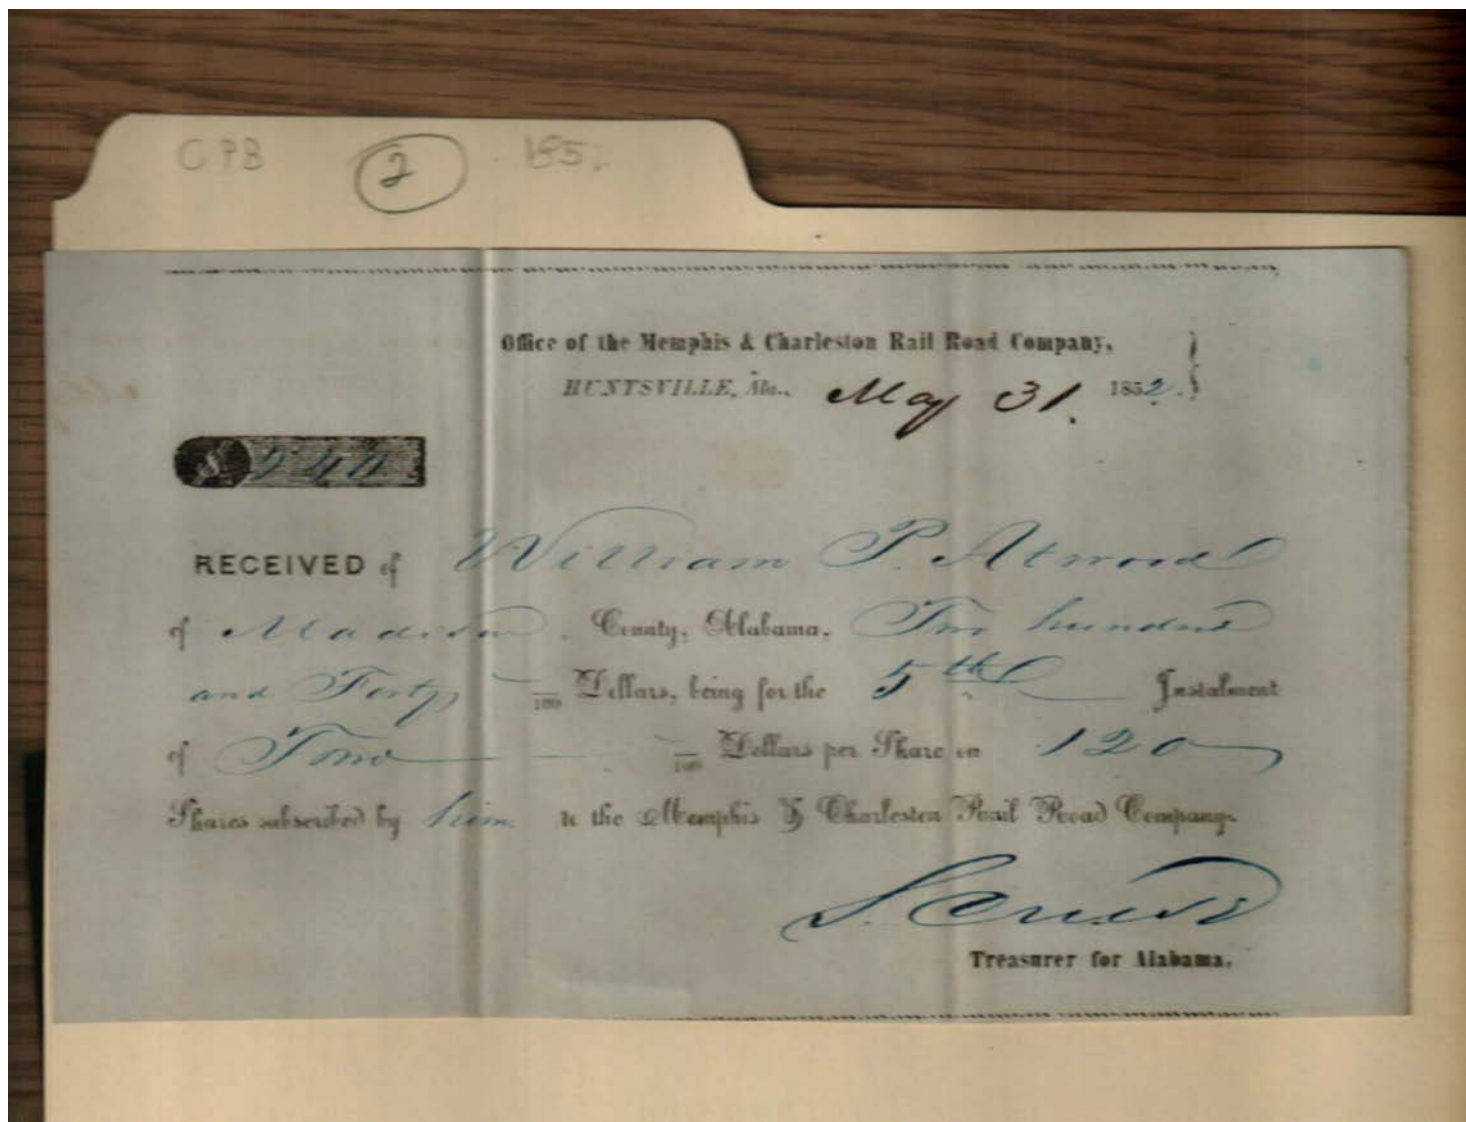 CPB 2 185
Office of the Memphis & Charleston Rail Road Company,
HUNTSVILLE, Ala., May 31. 1852.
$ 240
RECEIVED of William P. Atwood
of Madison County, Alabama, Two hundred
and Forty /100 Dollars, being for the 5th Instalment
of Two /100 Dollars per Share on 120
Shares subscribed by him to the Memphis & Charleston Rail Road Company.
S. Cruse
Treasurer for Alabama.